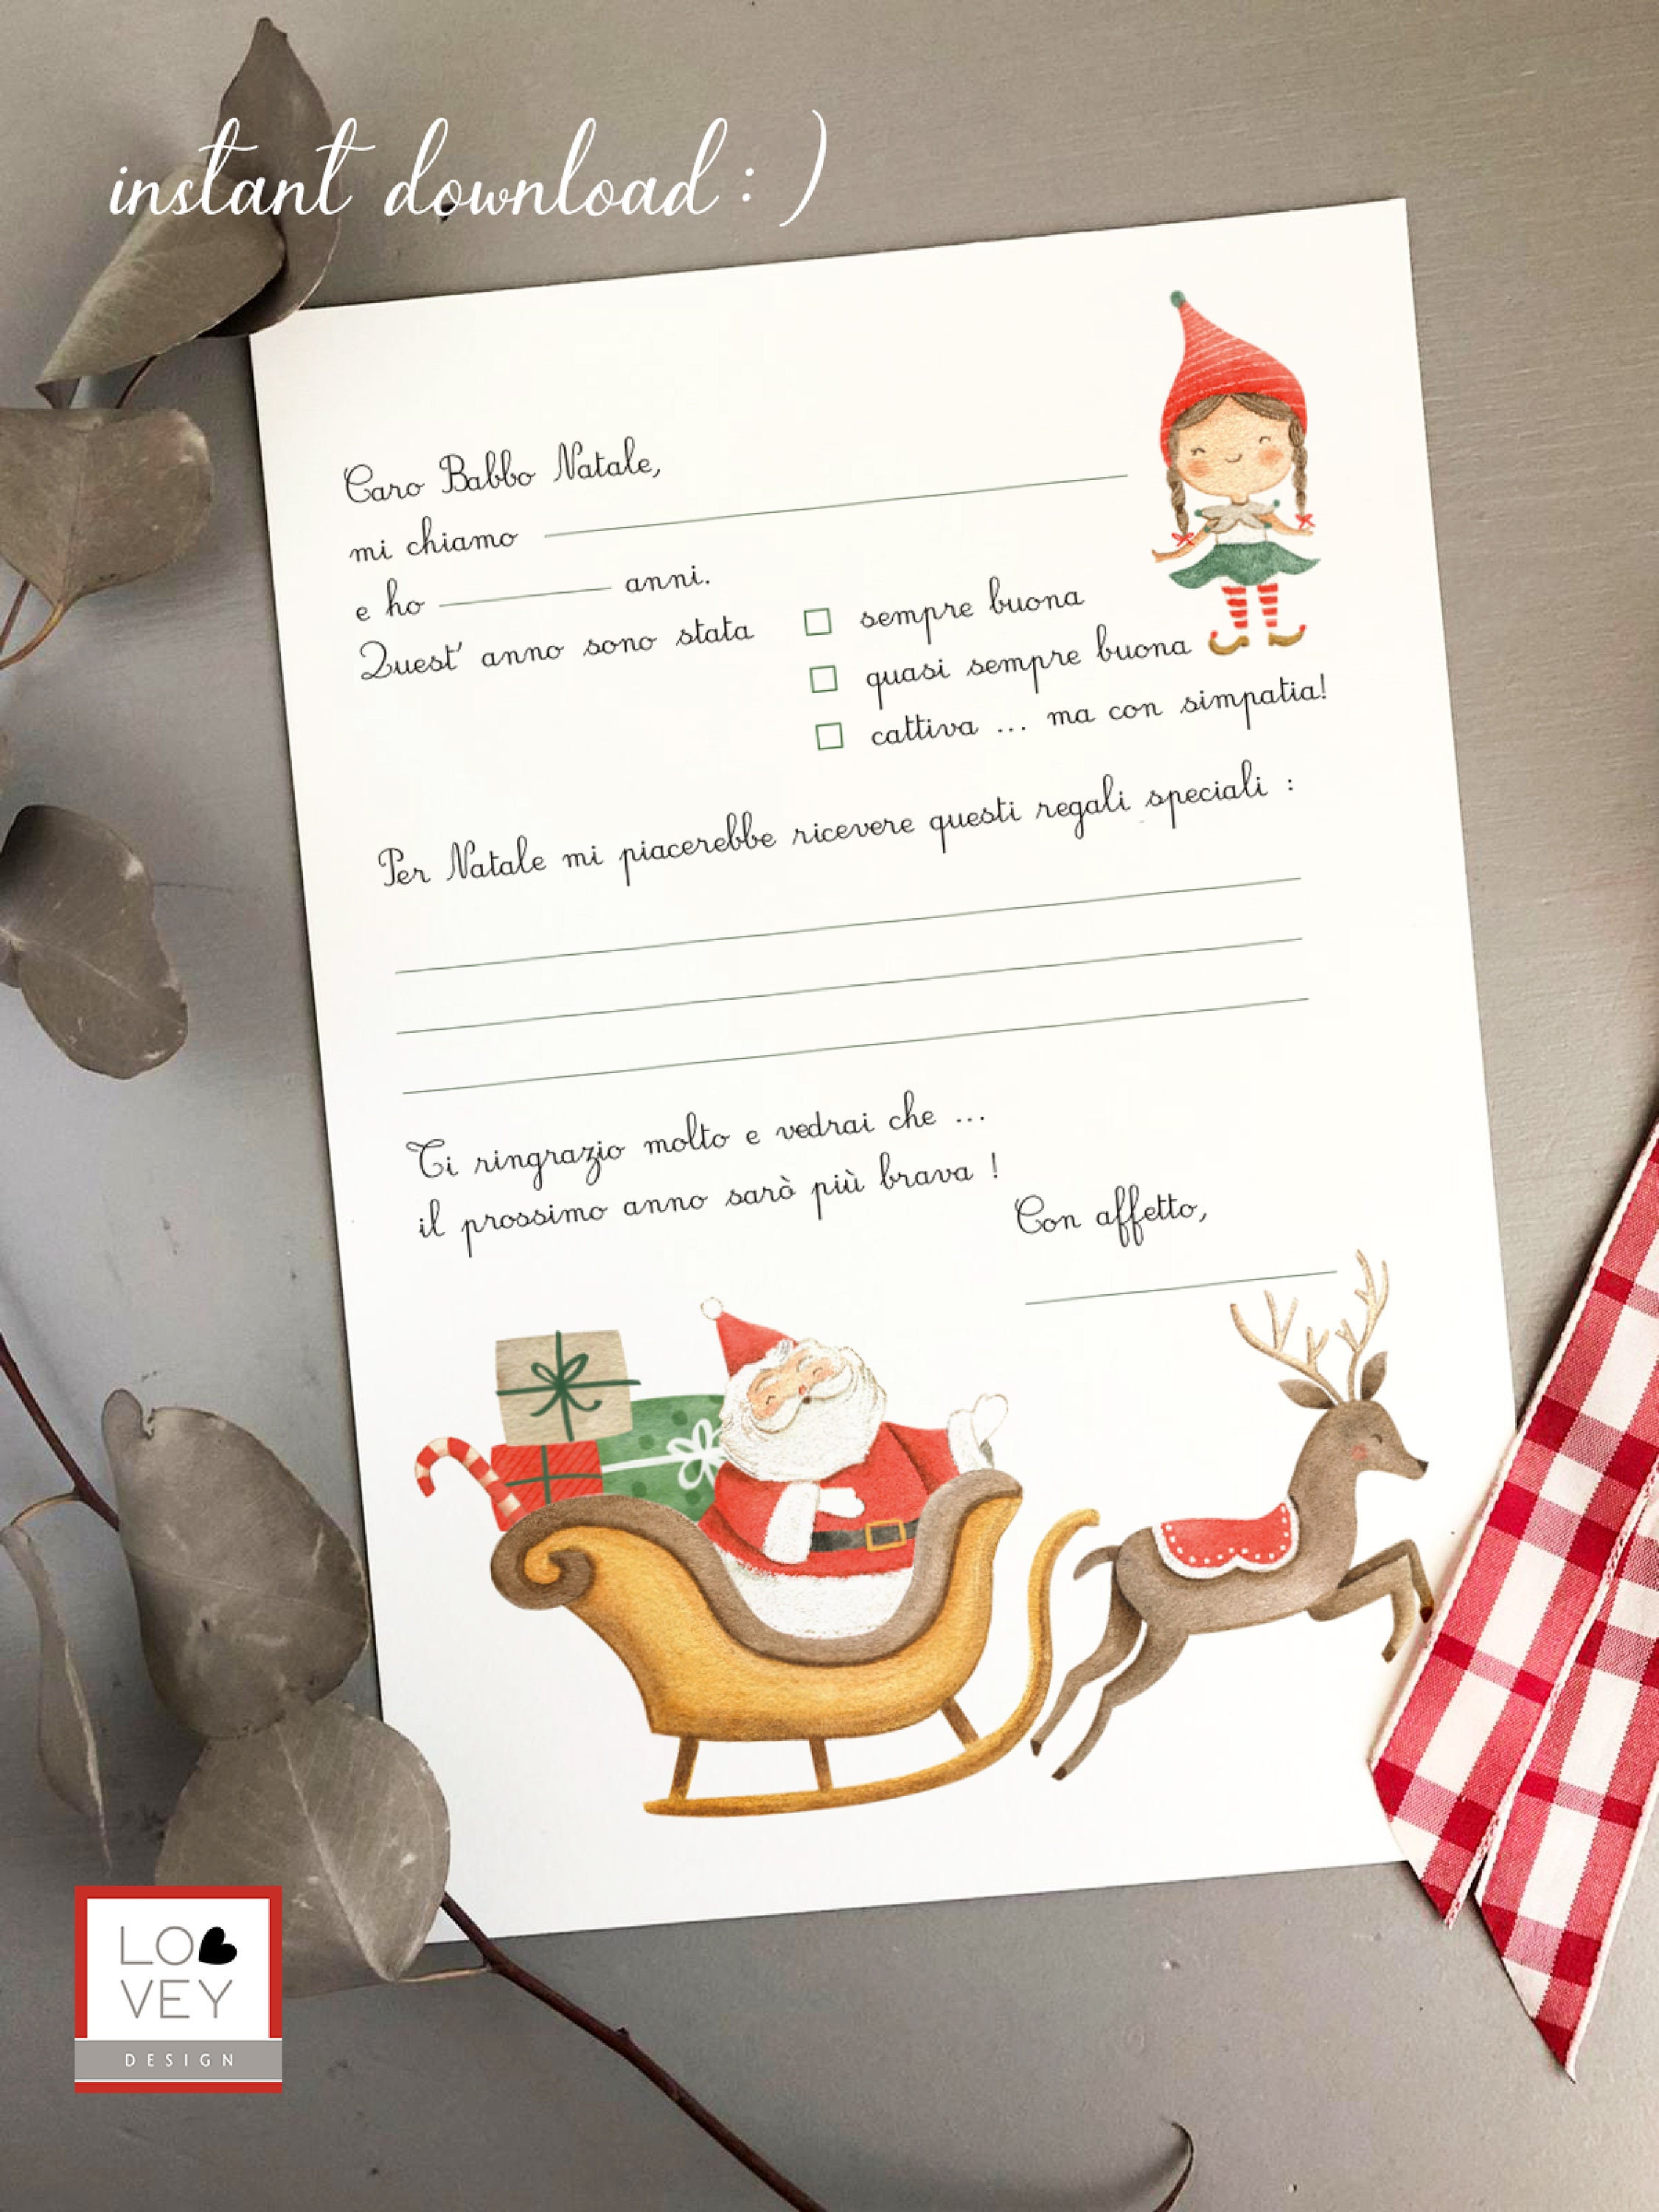 instant download : )
Caro Babbo Natale,
mi chiamo
e ho anni.
Quest' anno sono stata
sempre buona
quasi sempre buona
cattiva ... ma con simpatia!
Per Natale mi piacerebbe ricevere questi regali speciali :
Ti ringrazio molto e vedrai che ...
il prossimo anno sarò più brava !
Con affetto,
LO
VEY
DESIGN